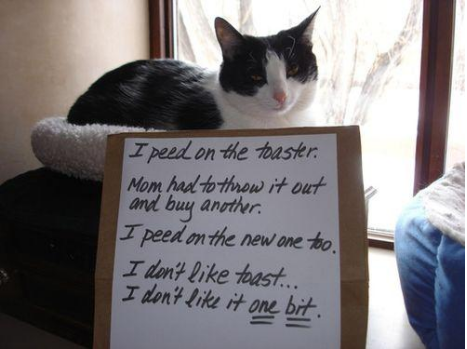 I peed on the toaster.
Mom had to throw it out
and buy another.
I peed on the new one too.
I don't like toast...
I don't like it one bit.